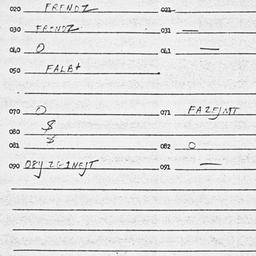 020 FRENDZ 021
030 FRENDZ 031 —
040 0 041 —
050 FALB+
070 0 071
080 $
081 $ 082 0
090 091 —